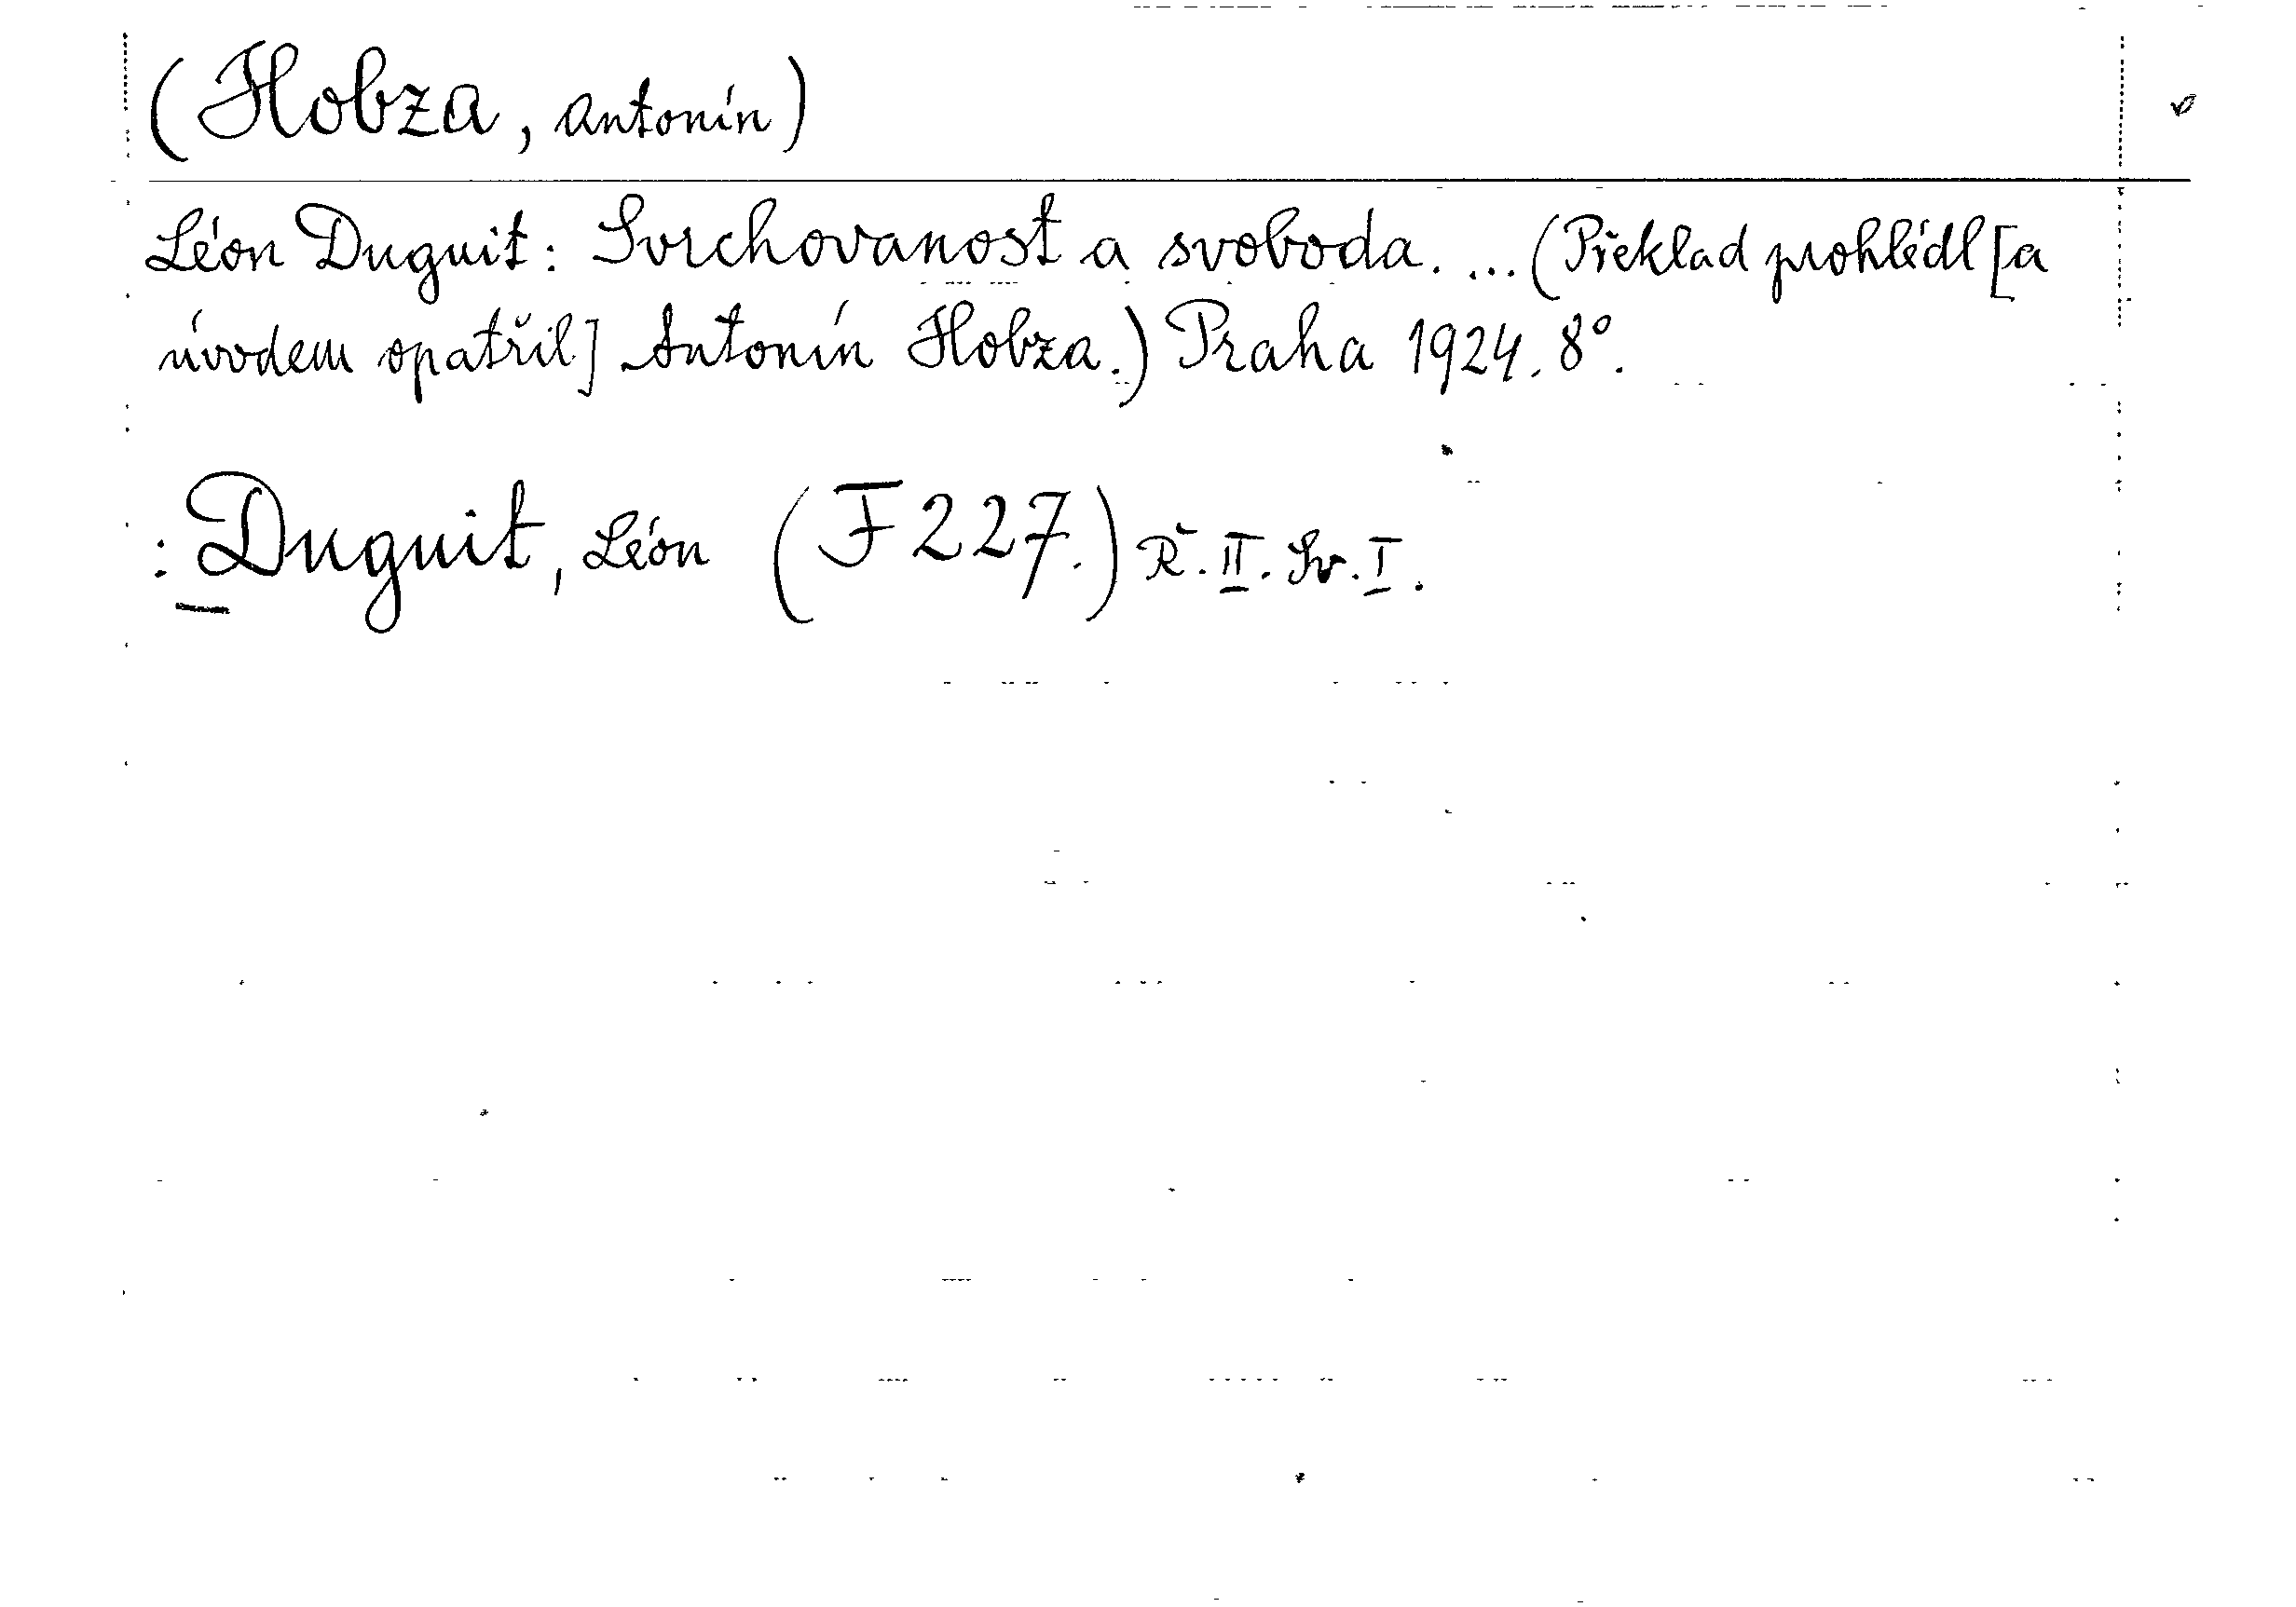 (Hobza, Antonín)
Léon Duguit: Svrchovanost a svoboda. ... (Překlad prohlédl [a
úvodem opatřil] Antonín Hobza.) Praha 1924. 8°.
: Duguit, Léon (F 227.) Ř. II. Sv. I.